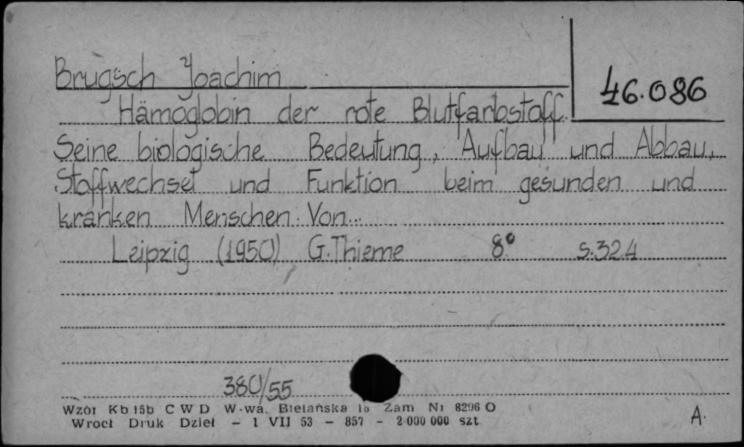 Brugsch Joachim
46.086
Hämoglobin der rote Blutfarbstoff.
Seine biologische Bedeutung, Aufbau und Abbau,
Stoffwechsel und Funktion beim gesunden und
kranken Menschen. Von...
Leipzig (1950) G. Thieme 8° s. 324
380/55
Wzór Kb 15b C W D W-wa, Bielańska 18 Zam Nr 8296 O
Wrocł Druk Dzieł – 1 VII 53 – 857 – 2 000 000 szt
A.